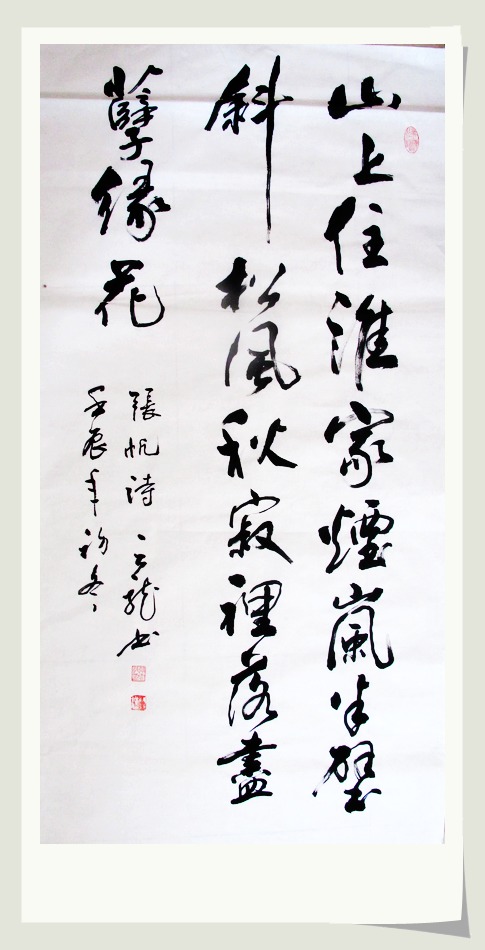 山上住誰家煙嵐半壁
斜松風秋寂裡落盡
孽緣花
張帆詩 云龍书
壬辰年初冬